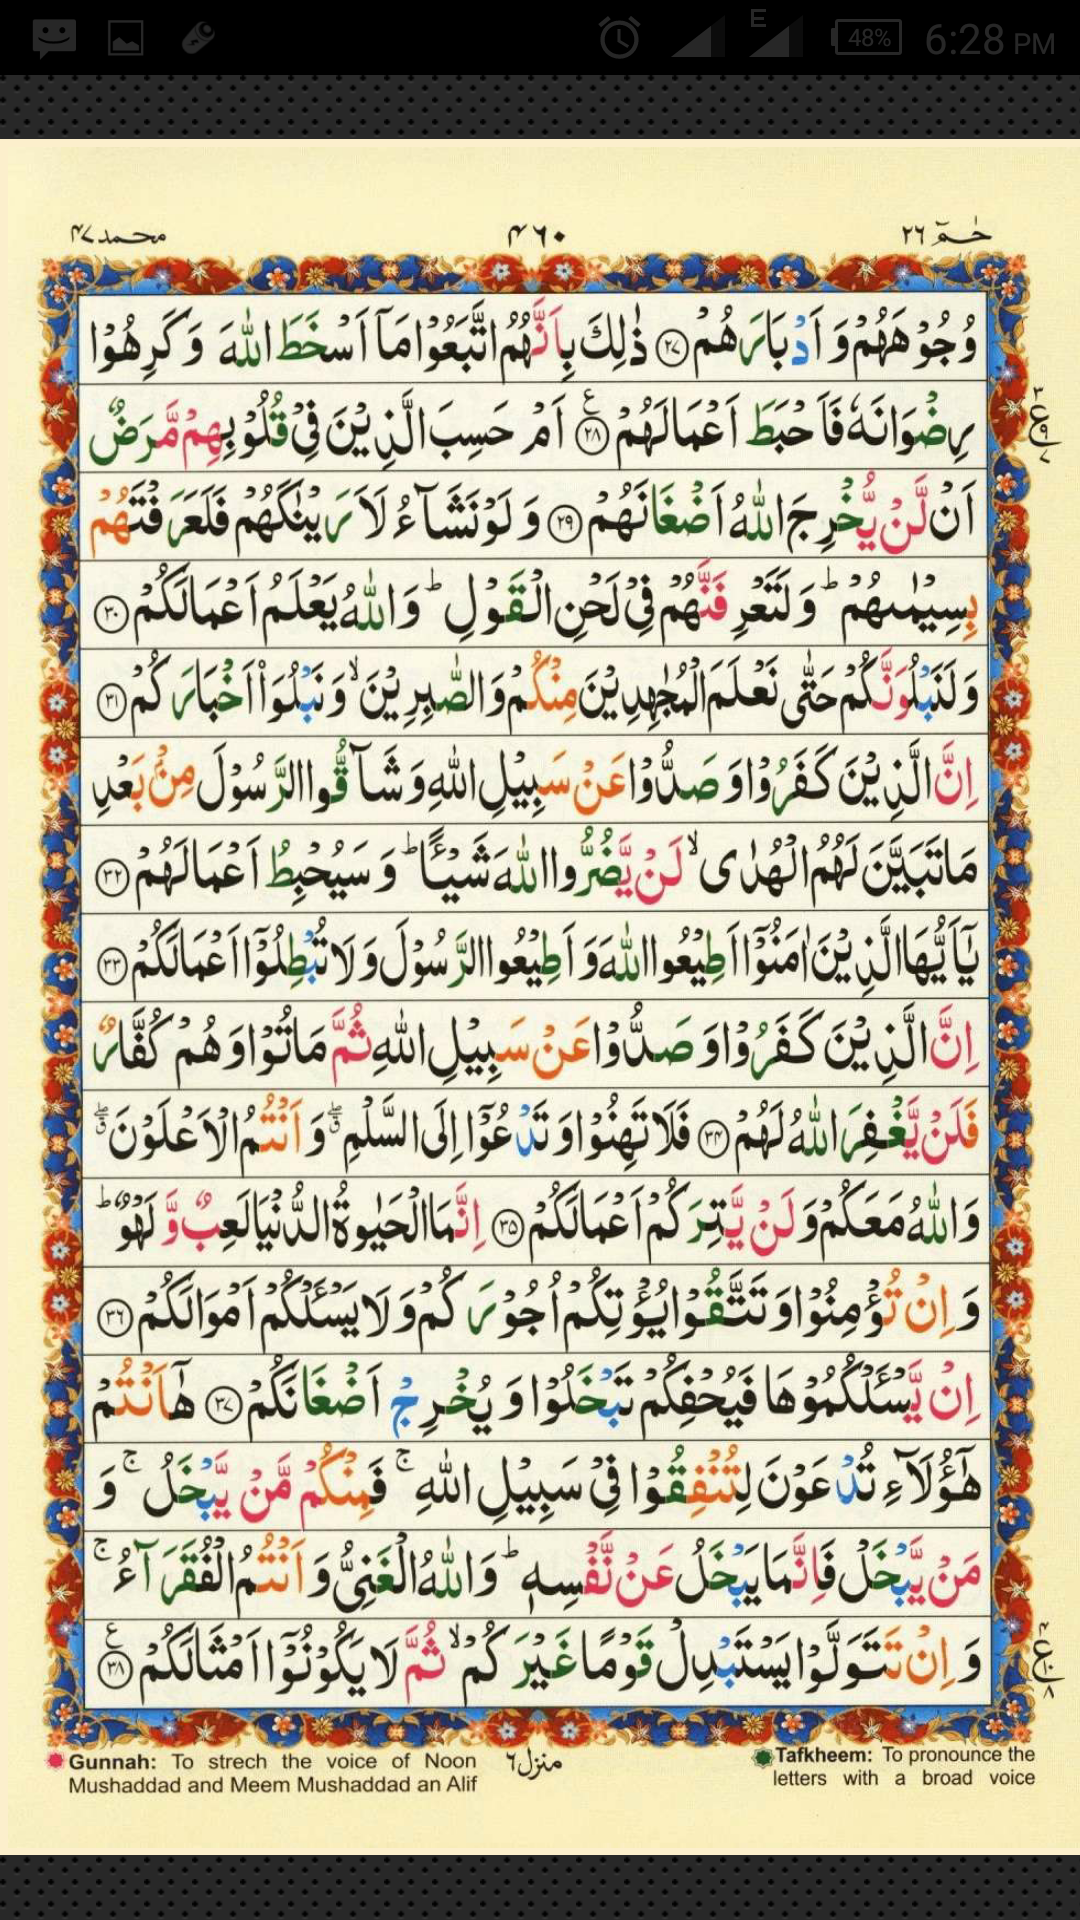 48% 6:28 PM
E
محمد ۴۷ ۴۶۰ حٰمٓ ۲۶
وُجُوْهَهُمْ وَ اَدْبَارَهُمْ ۝۲۷ ذٰلِكَ بِاَنَّهُمُ اتَّبَعُوْا مَاۤ اَسْخَطَ اللّٰهَ وَ كَرِهُوْا
رِضْوَانَهٗ فَاَحْبَطَ اَعْمَالَهُمْ ۝۲۸ ع اَمْ حَسِبَ الَّذِيْنَ فِيْ قُلُوْبِهِمْ مَّرَضٌ
۳ ع ۹ ۷
اَنْ لَّنْ يُّخْرِجَ اللّٰهُ اَضْغَانَهُمْ ۝۲۹ وَ لَوْ نَشَآءُ لَاَرَيْنٰكَهُمْ فَلَعَرَفْتَهُمْ
بِسِيْمٰىهُمْ ؕ وَ لَتَعْرِفَنَّهُمْ فِيْ لَحْنِ الْقَوْلِ ؕ وَ اللّٰهُ يَعْلَمُ اَعْمَالَكُمْ ۝۳۰
وَ لَنَبْلُوَنَّكُمْ حَتّٰى نَعْلَمَ الْمُجٰهِدِيْنَ مِنْكُمْ وَ الصّٰبِرِيْنَ ۙ وَ نَبْلُوَا۠ اَخْبَارَكُمْ ۝۳۱
اِنَّ الَّذِيْنَ كَفَرُوْا وَ صَدُّوْا عَنْ سَبِيْلِ اللّٰهِ وَ شَآقُّوا الرَّسُوْلَ مِنْۢ بَعْدِ
مَا تَبَيَّنَ لَهُمُ الْهُدٰى ۙ لَنْ يَّضُرُّوا اللّٰهَ شَيْـًٔا ؕ وَ سَيُحْبِطُ اَعْمَالَهُمْ ۝۳۲
يٰۤاَيُّهَا الَّذِيْنَ اٰمَنُوْۤا اَطِيْعُوا اللّٰهَ وَ اَطِيْعُوا الرَّسُوْلَ وَ لَا تُبْطِلُوْۤا اَعْمَالَكُمْ ۝۳۳
اِنَّ الَّذِيْنَ كَفَرُوْا وَ صَدُّوْا عَنْ سَبِيْلِ اللّٰهِ ثُمَّ مَاتُوْا وَ هُمْ كُفَّارٌ
فَلَنْ يَّغْفِرَ اللّٰهُ لَهُمْ ۝۳۴ فَلَا تَهِنُوْا وَ تَدْعُوْۤا اِلَى السَّلْمِ ۖۗ وَ اَنْتُمُ الْاَعْلَوْنَ ۖۗ
وَ اللّٰهُ مَعَكُمْ وَ لَنْ يَّتِرَكُمْ اَعْمَالَكُمْ ۝۳۵ اِنَّمَا الْحَيٰوةُ الدُّنْيَا لَعِبٌ وَّ لَهْوٌ ؕ
وَ اِنْ تُؤْمِنُوْا وَ تَتَّقُوْا يُؤْتِكُمْ اُجُوْرَكُمْ وَ لَا يَسْـَٔلْكُمْ اَمْوَالَكُمْ ۝۳۶
اِنْ يَّسْـَٔلْكُمُوْهَا فَيُحْفِكُمْ تَبْخَلُوْا وَ يُخْرِجْ اَضْغَانَكُمْ ۝۳۷ هٰۤاَنْتُمْ
هٰۤؤُلَآءِ تُدْعَوْنَ لِتُنْفِقُوْا فِيْ سَبِيْلِ اللّٰهِ ۚ فَمِنْكُمْ مَّنْ يَّبْخَلُ ۚ وَ
مَنْ يَّبْخَلْ فَاِنَّمَا يَبْخَلُ عَنْ نَّفْسِهٖ ؕ وَ اللّٰهُ الْغَنِيُّ وَ اَنْتُمُ الْفُقَرَآءُ ۚ
وَ اِنْ تَتَوَلَّوْا يَسْتَبْدِلْ قَوْمًا غَيْرَكُمْ ۙ ثُمَّ لَا يَكُوْنُوْۤا اَمْثَالَكُمْ ۝۳۸ ع
۴ ع ۱۰ ۸
Gunnah: To strech the voice of Noon
Mushaddad and Meem Mushaddad an Alif
منزل ۶
Tafkheem: To pronounce the
letters with a broad voice